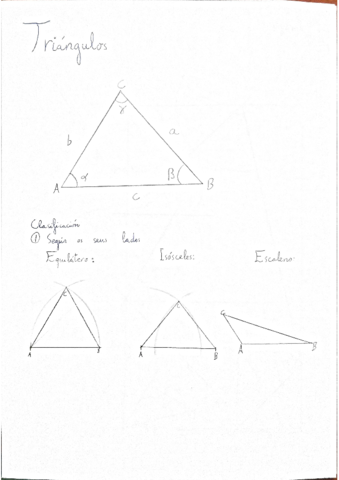 Triángulos
C
γ
b
a
α
β
A
B
c
Clasificación
① Según os seus lados
Equilátero:
Isósceles:
Escaleno
C
A
B
C
A
B
C
A
B